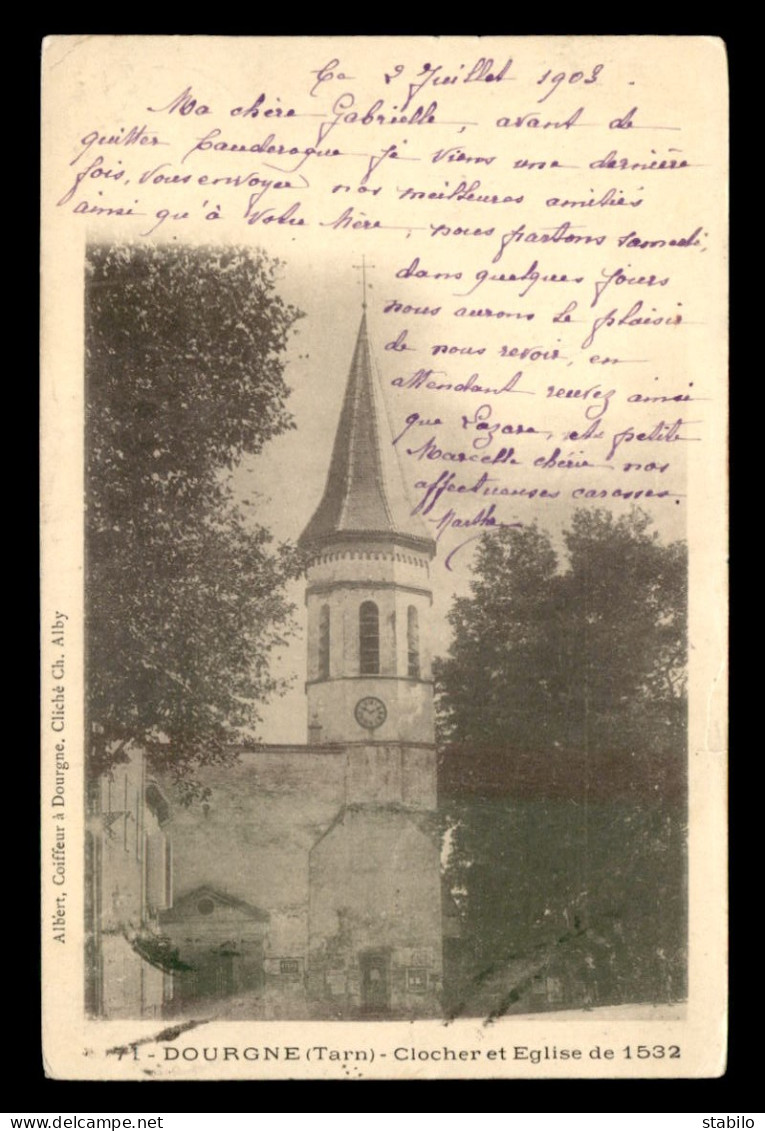 Ce 2 Juillet 1903.
Ma chère Gabrielle, avant de
quitter Cauderogue je viens une dernière
fois, vous envoyer nos meilleures amitiés
ainsi qu'à Votre Mère, nous partons samedi,
dans quelques jours
nous aurons le plaisir
de nous revoir, en
attendant recevez ainsi
que Lazare, et petite
Marcelle chérie nos
affectueuses caresses.
Marthe
Albert, Coiffeur à Dourgne. Cliché Ch. Alby
71 - DOURGNE (Tarn) - Clocher et Eglise de 1532
www.delcampe.net
stabilo